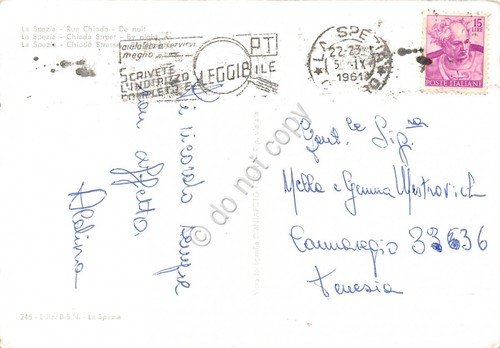 La Spezia - Rue Chiodo - De nuit
La Spezia - Chiodo Street - By night
La Spezia - Chiodo
aiutateci a servirvi
meglio
SCRIVETE
L'INDIRIZZO
COMPLETO E
LEGGIBILE
PT
LA SPEZIA
22-23
5 IX
1961
15
LIRE
POSTE ITALIANE
Vi ricordo sempre
con affetto.
Aldina
Gent. le Sig. na
Mella e Gemma Mestrovich
Cannaregio 33636
Venezia
do not copy
246 - Ediz. D.S.N. - La Spezia